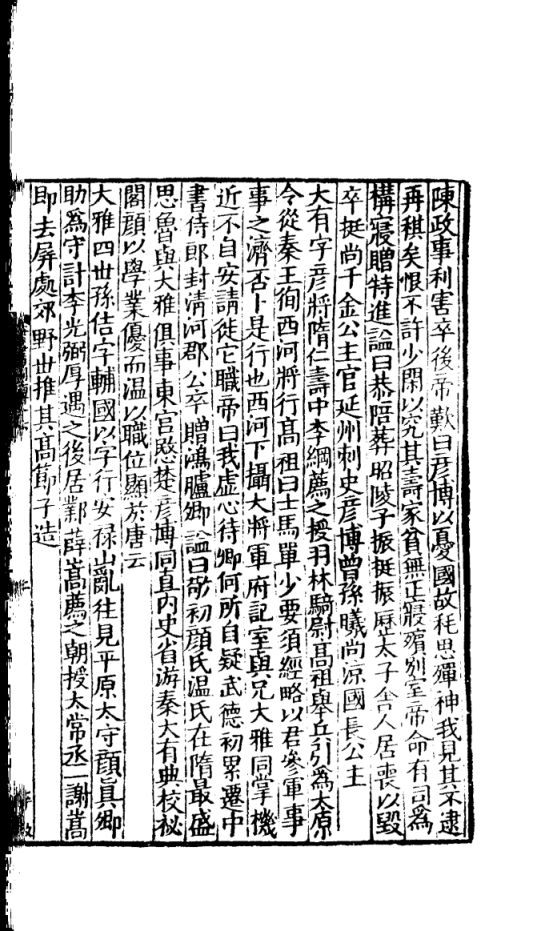 陳政事利害卒後帝歎曰彦博以憂國故秏思殫神我見其不逮
再稘矣恨不許少閑以究其壽家貧無正寢殯別室帝命有司爲
構寢贈特進諡曰恭陪葬昭陵子振挺振歷太子舍人居喪以毀
卒挺尚千金公主官延州刺史彦博曾孫曦尚凉國長公主
大有字彦將隋仁壽中李綱薦之授羽林騎尉高祖舉兵引爲太原
令從秦王徇西河將行高祖曰士馬單少要須經略以君參軍事
事之濟否卜是行也西河下攝大將軍府記室與兄大雅同掌機
近不自安請徙它職帝曰我虚心待卿何所自疑武德初累遷中
書侍郎封清河郡公卒贈鴻臚卿諡曰敬初顔氏温氏在隋最盛
思魯與大雅俱事東宫愍楚彦博同直内史省游秦大有典校祕
閣顔以學業優而温以職位顯於唐云
大雅四世孫佶字輔國以字行安禄山亂往見平原太守顔真卿
助爲守計李光弼厚遇之後居鄴薛嵩薦之朝授太常丞一謝嵩
即去屏處郊野世推其高節子造